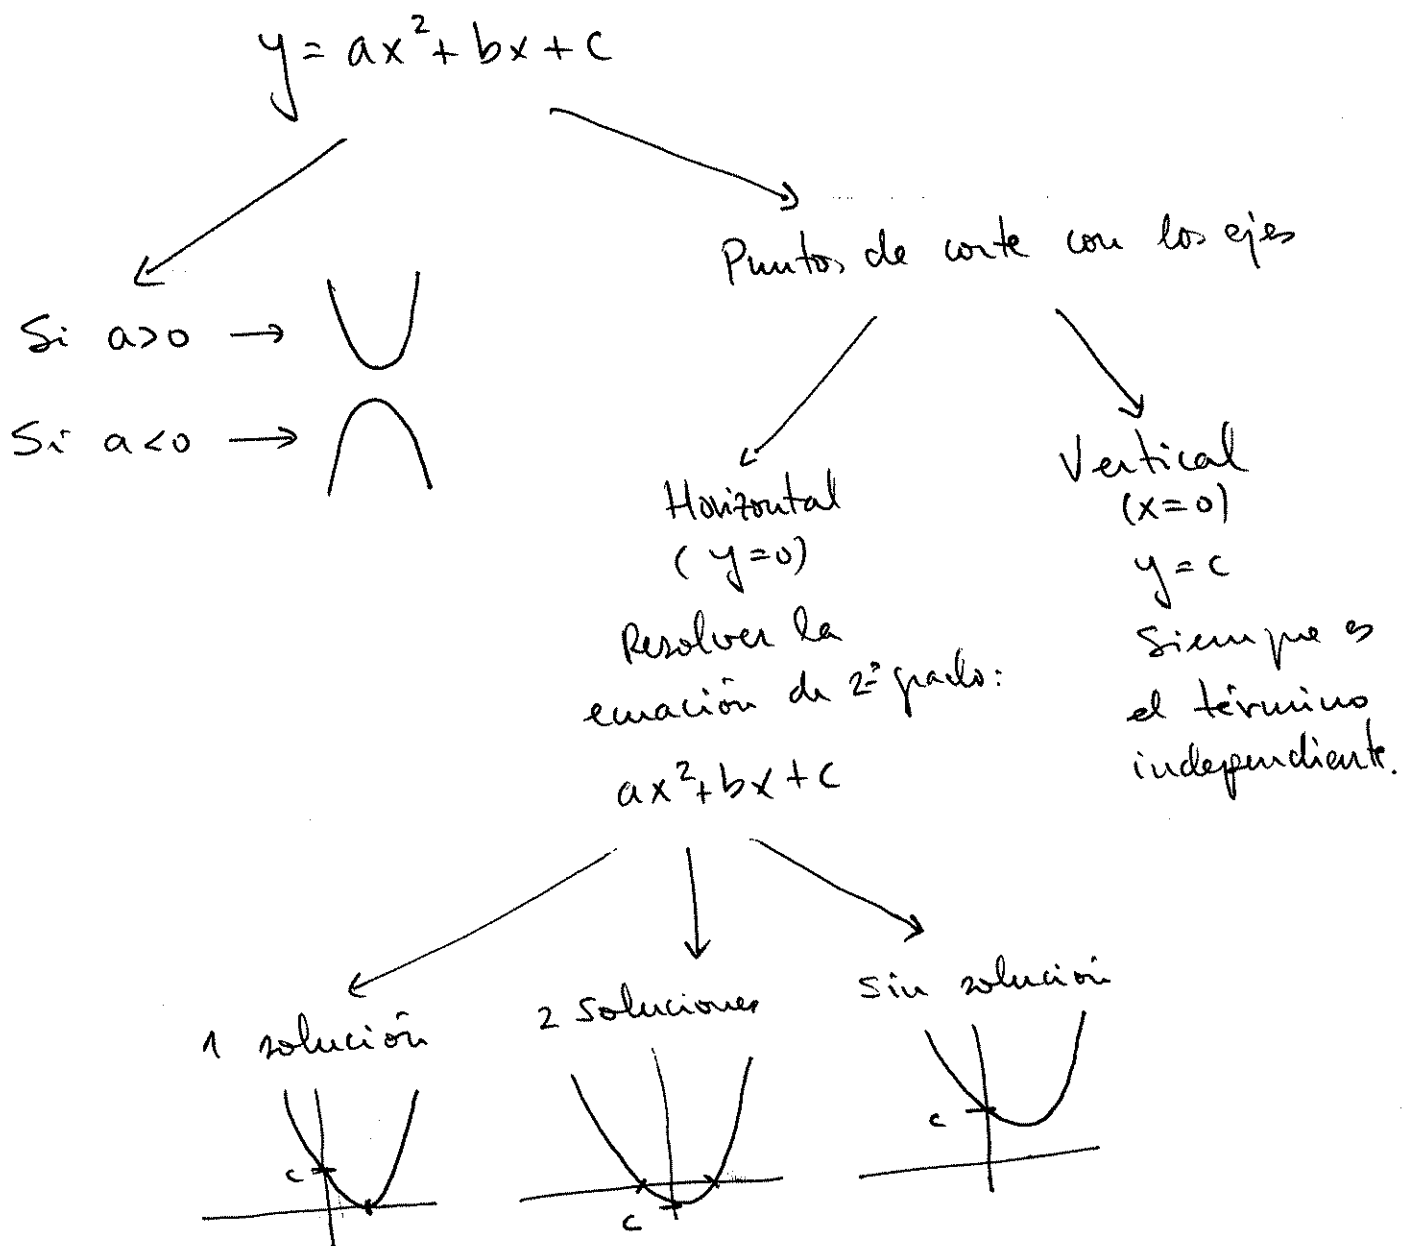 y = ax² + bx + c
Si a>0 →
Si a<0 →
Puntos de corte con los ejes
Horizontal
(y=0)
Resolver la
ecuación de 2º grado:
ax²+bx+c
Vertical
(x=0)
y=c
Siempre es
el término
independiente.
1 solución
c
2 soluciones
c
Sin solución
c